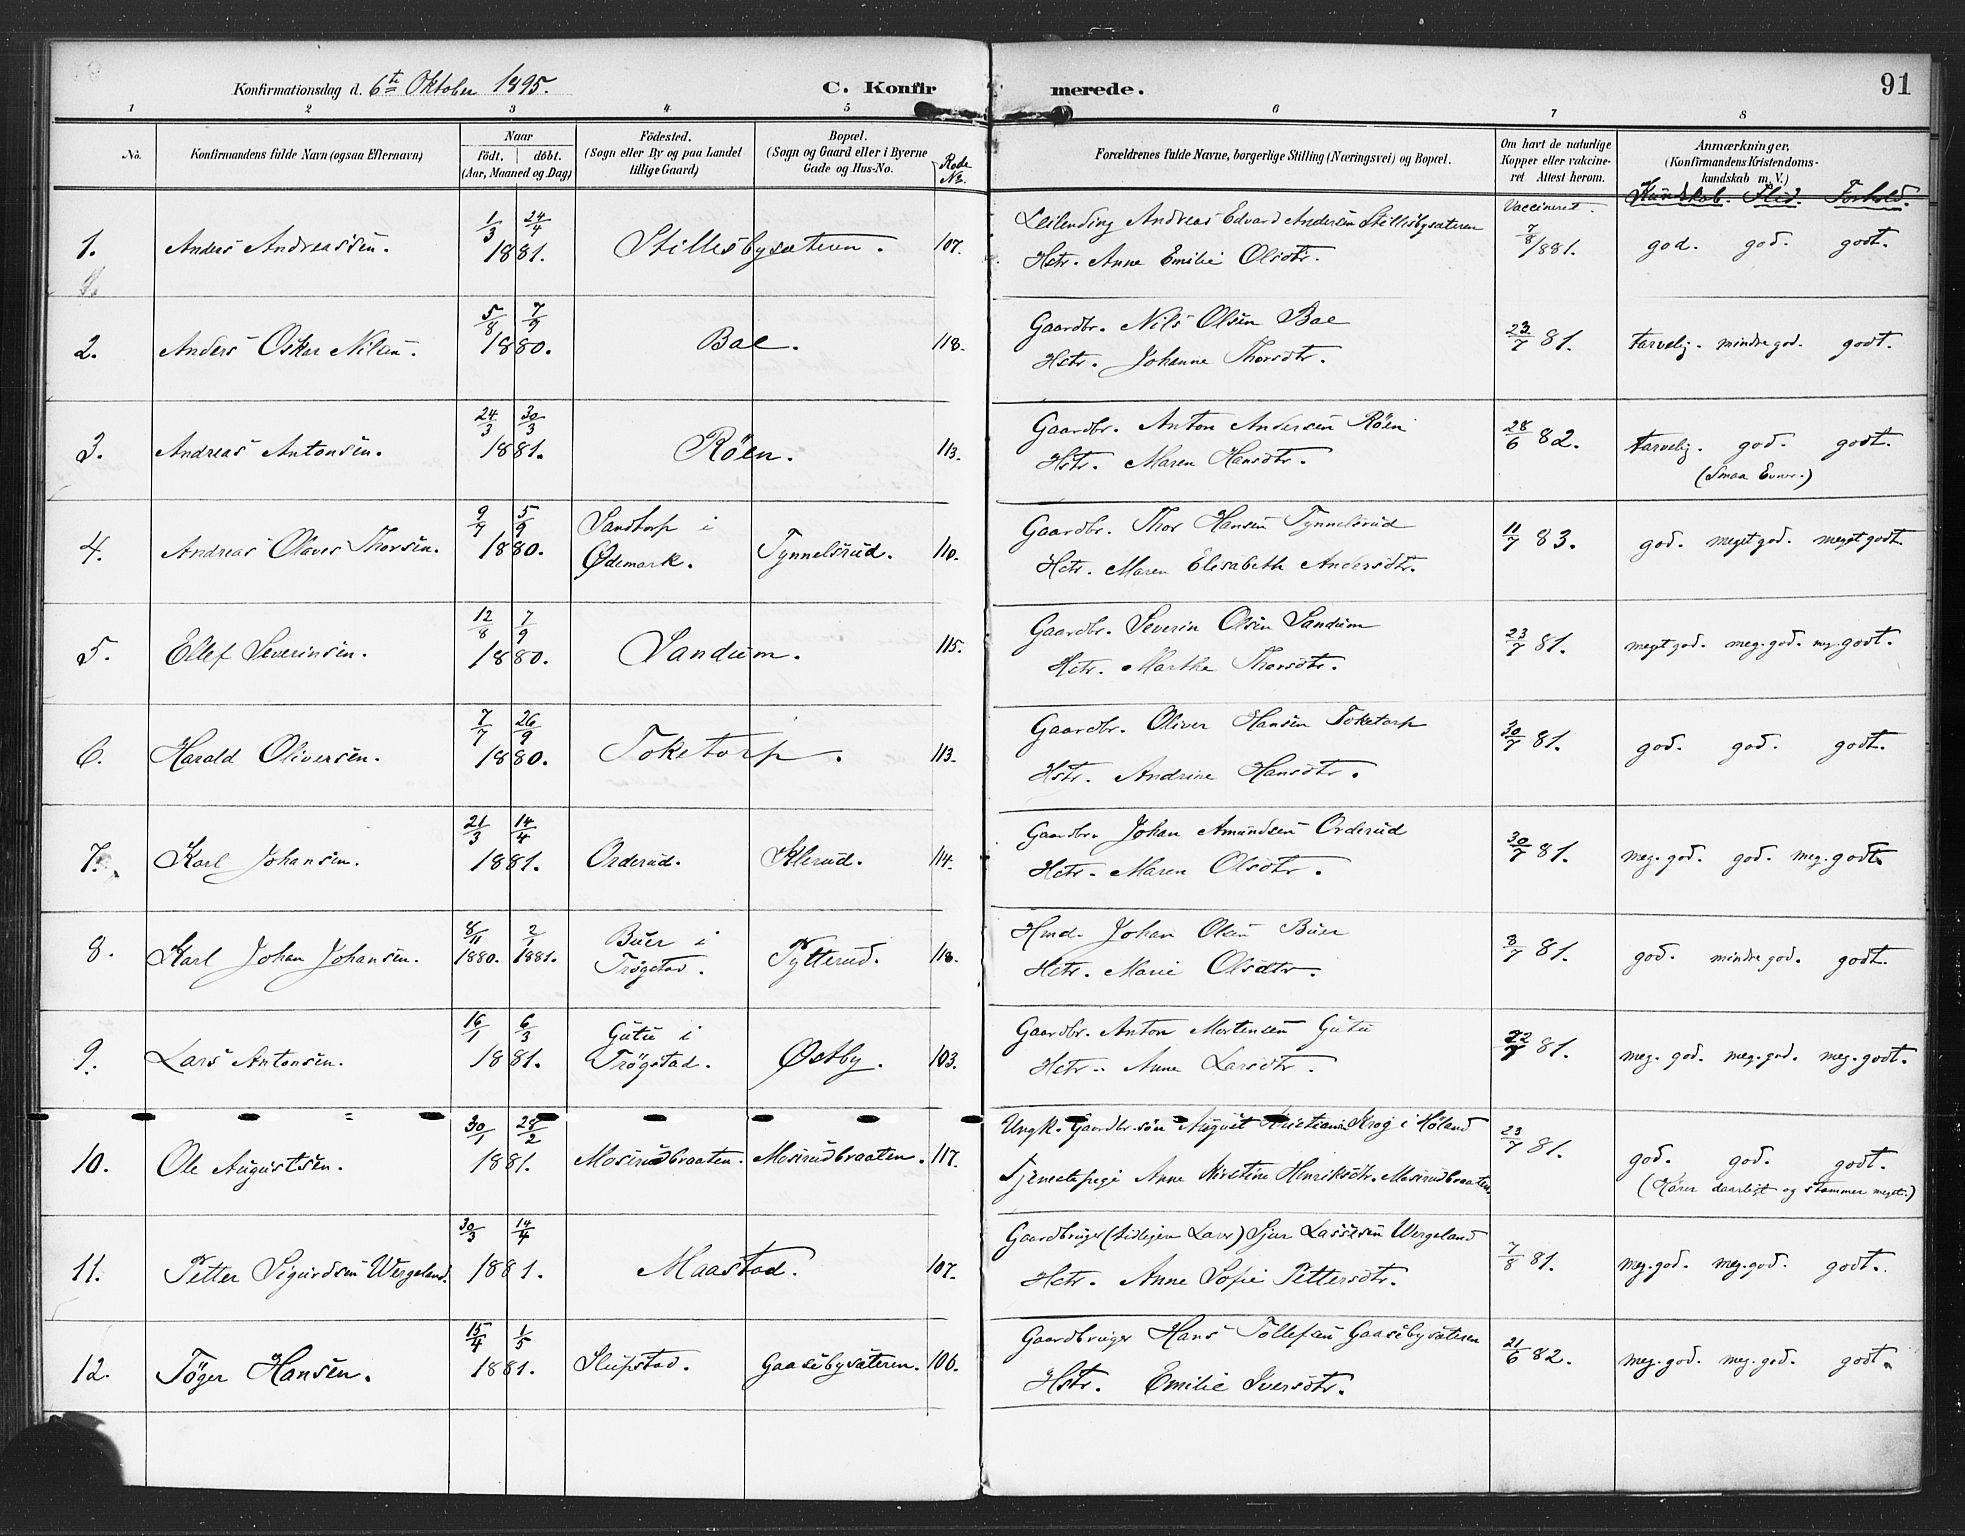 91
Konfirmationsdag d. 6te Oktober 1895.
C. Konfirmerede.
1 2 3 4 5 6 7 8
No.
Konfirmandens fulde Navn (ogsaa Efternavn)
Naar
født. døbt.
(Aar, Maaned og Dag)
Fødested.
(Sogn eller By og paa Landet
tillige Gaard)
Bopæl.
(Sogn og Gaard eller i Byerne
Gade og Hus-No.
Rode
No.
Forældrenes fulde Navne, borgerlige Stilling (Næringsvei) og Bopæl.
Om havt de naturlige
Kopper eller vakcine-
ret Attest herom.
Anmærkninger,
(Konfirmandens Kristendoms-
kundskab m. V.)
Vaccineret.
Kundskab. Flid. Forhold.
1. Anders Andreassen. 1/3 24/4 1881. Stillesbysæteren. 107.
Leilending Andreas Edvard Andersen Stillisbysæteren
Hstr. Anne Emilie Olsdtr.
7/8 1881. god. god. godt.
2. Anders Oskar Nilsen. 5/8 7/9 1880. Boe. 118.
Gaardbr. Nils Olsen Boe
Hstr. Johanne Thorsdtr.
23/7 81. tarvelig. mindre god. godt.
3. Andreas Antonsen. 24/3 30/3 1881. Røen. 113.
Gaardbr. Anton Andersen Røen
Hstr. Maren Hansdtr.
28/6 82. tarvelig. god. godt.
(Smaa Evner.)
4. Andreas Olaves Thorsen. 9/7 5/9 1880. Sandtorp i
Ødemark. Tynnelsrud. 110.
Gaardbr. Thor Hansen Tynnelsrud
Hstr. Maren Elisabeth Andersdtr.
11/7 83. god. meget god. meget godt.
5. Ellef Severinsen. 12/8 7/9 1880. Sandum. 115.
Gaardbr. Severin Olsen Sandum
Hstr. Marthe Thorsdtr.
23/7 81. meget god. meg. god. meg. godt.
6. Harald Oliversen. 7/7 26/9 1880. Toketorp. 113.
Gaardbr. Oliver Hansen Toketorp
Hstr. Andrine Hansdtr.
30/7 81. god. god. godt.
7. Karl Johansen. 21/3 14/4 1881. Orderud. Sklerud. 114.
Gaardbr. Johan Amundsen Orderud
Hstr. Maren Olsdtr.
30/7 81. meg. god. god. meg. godt.
8. Karl Johan Johansen. 8/11 1880. 2/1 1881. Buer i
Trøgstad. Tytterud. 118.
Hmd. Johan Olsen Buer
Hstr. Marie Olsdtr.
8/7 81. god. mindre god. godt.
9. Lars Antonsen. 16/1 6/3 1881. Gutu i
Trøgstad. Østby. 103.
Gaardbr. Anton Mortensen Gutu
Hstr. Anne Larsdtr.
81. meg. god. meg. god. meg. godt.
10. Ole Augustsen. 30/1 28/2 1881. Mosirudbraaten. Mosirudbraaten. 117.
Ungk. Gaardbr. søn August Kristiansen Krog i Høland
Tjenestepige Anne Kirstine Henriksdtr. Mosirudbraaten
23/7 81. god. god. godt.
(Hører daarligt og stammer meget.)
11. Petter Sigurdsen Wergeland. 30/3 14/4 1881. Maastad. 107.
Gaardbruger (tidligere Lærer) Sjur Lassesen Wergeland
Hstr. Anne Sofie Pettersdtr.
7/8 81. meg. god. meg. god. godt.
12. Tøger Hansen. 15/4 1/5 1881. Slupstad. Gaasebysæteren. 106.
Gaardbruger Hans Tollefsen Gaasebysæteren
Hstr. Emilie Iversdtr.
21/6 82. meg. god. meg. god. godt.